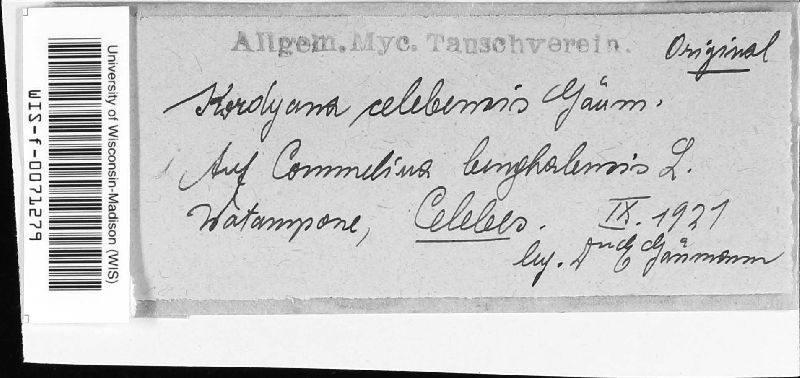 Allgem. Myc. Tauschverein.
Original
Kordyana celebensis Gäum.
Auf Commelina benghalensis L.
Watampone, Celebes. IX. 1921
leg. Dr E Gäumann
University of Wisconsin-Madison (WIS)
WIS-f-0071279